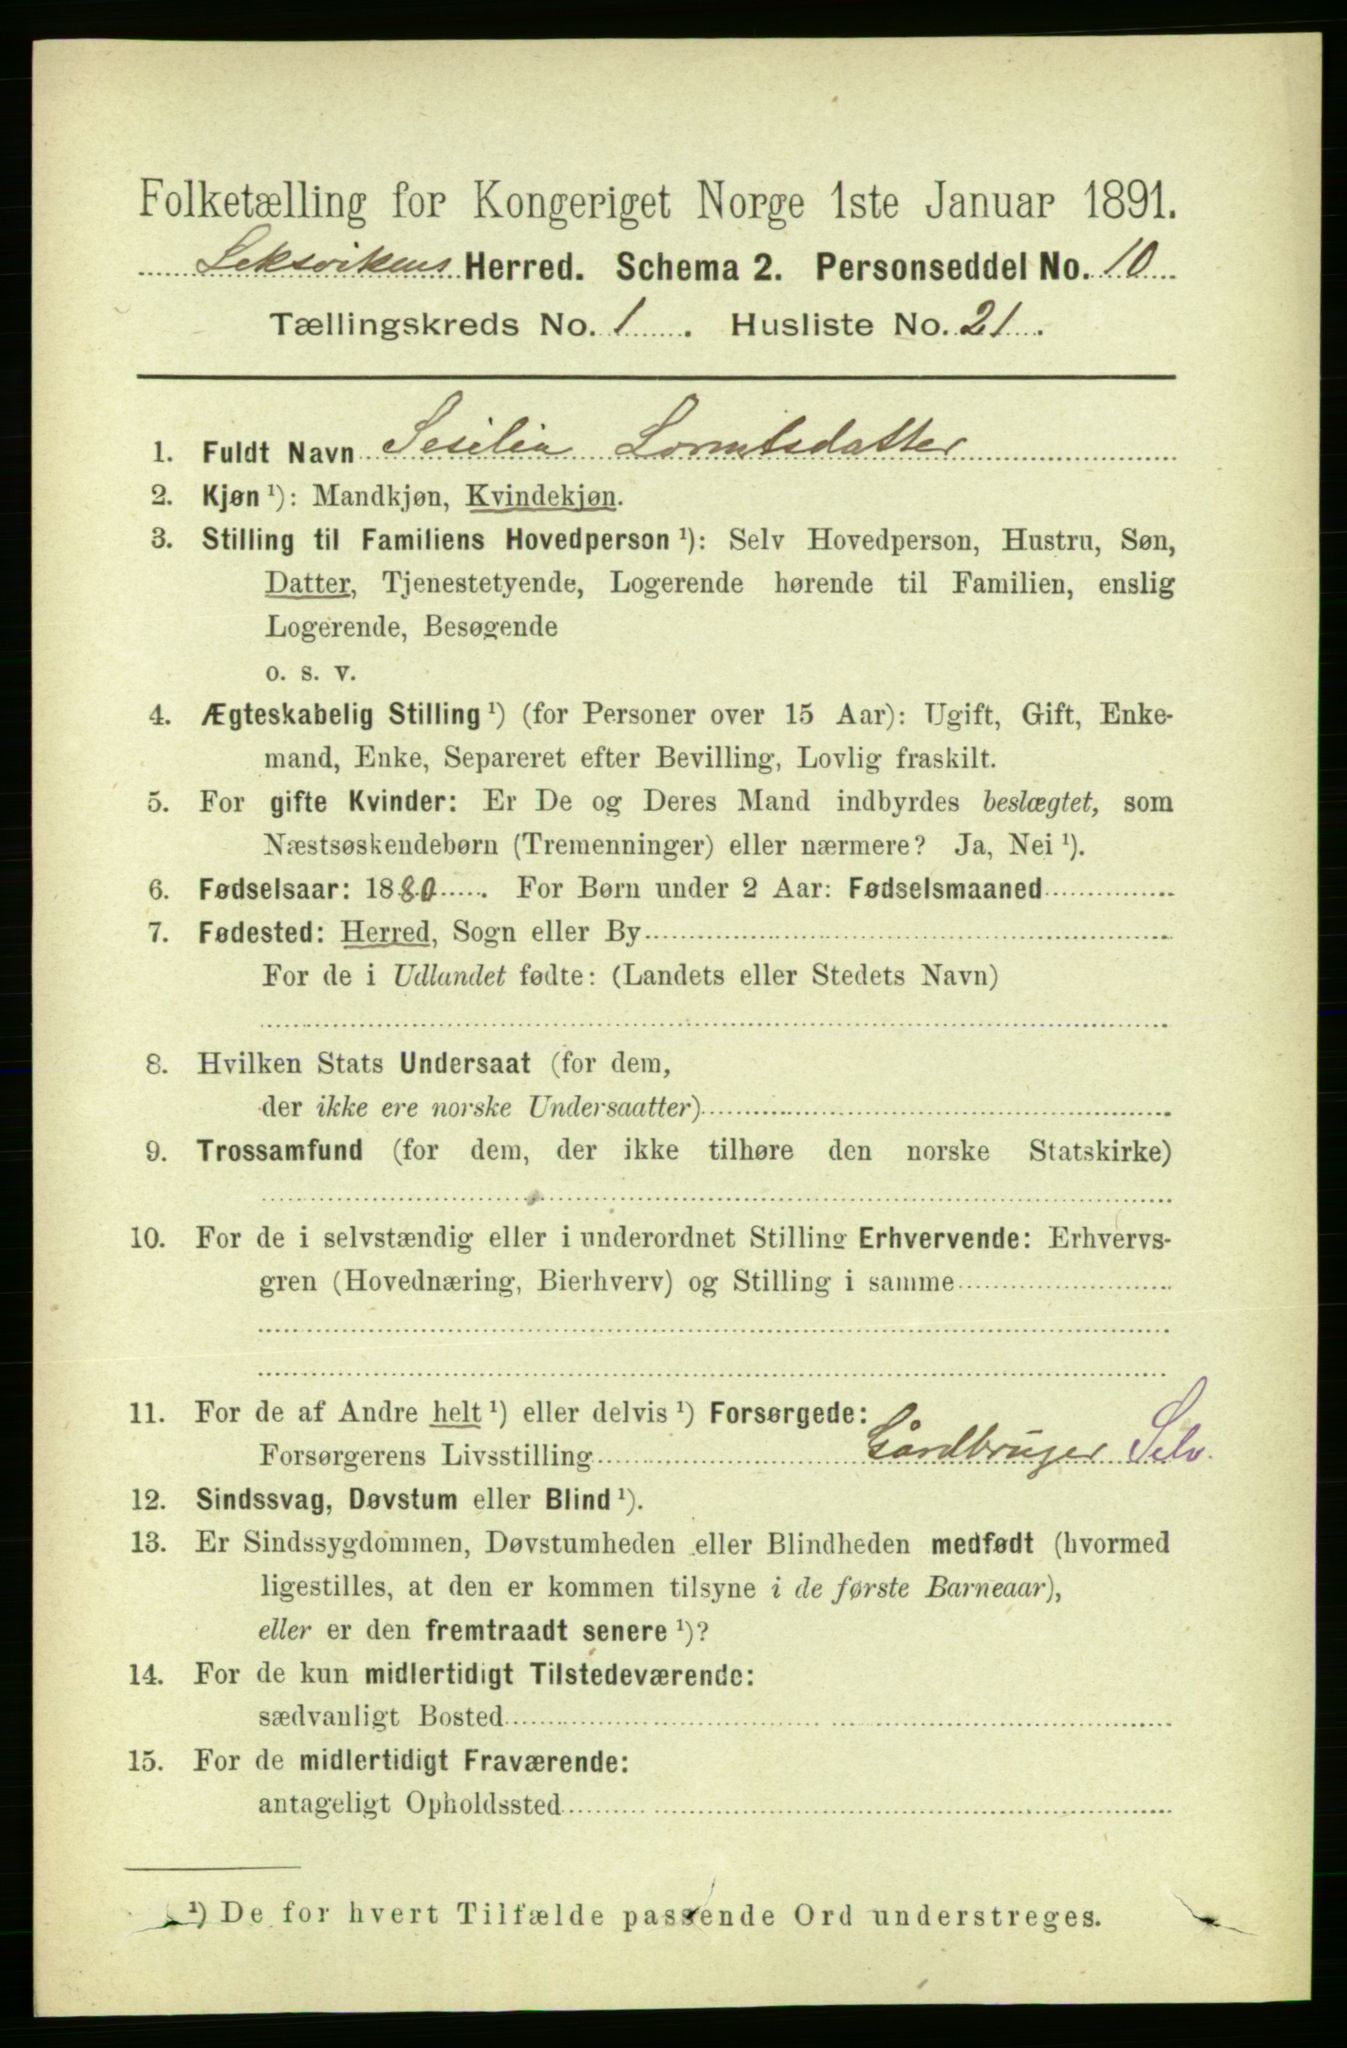 Folketælling for Kongeriget Norge 1ste Januar 1891.
Leksvikens Herred. Schema 2. Personseddel No. 10
Tællingskreds No. 1. Husliste No. 21.
1. Fuldt Navn Sesilia Lorntsdatter
2. Kjøn ¹): Mandkjøn, Kvindekjøn.
3. Stilling til Familiens Hovedperson ¹): Selv Hovedperson, Hustru, Søn,
Datter, Tjenestetyende, Logerende hørende til Familien, enslig
Logerende, Besøgende
o. s. v.
4. Ægteskabelig Stilling ¹) (for Personer over 15 Aar): Ugift, Gift, Enke-
mand, Enke, Separeret efter Bevilling, Lovlig fraskilt.
5. For gifte Kvinder: Er De og Deres Mand indbyrdes beslægtet, som
Næstsøskendebørn (Tremenninger) eller nærmere? Ja, Nei ¹).
6. Fødselsaar: 1880. For Børn under 2 Aar: Fødselsmaaned
7. Fødested: Herred, Sogn eller By
For de i Udlandet fødte: (Landets eller Stedets Navn)
8. Hvilken Stats Undersaat (for dem,
der ikke ere norske Undersaatter)
9. Trossamfund (for dem, der ikke tilhøre den norske Statskirke)
10. For de i selvstændig eller i underordnet Stilling Erhvervende: Erhvervs-
gren (Hovednæring, Bierhverv) og Stilling i samme
11. For de af Andre helt ¹) eller delvis ¹) Forsørgede:
Forsørgerens Livsstilling Gårdbruger Selv.
12. Sindssvag, Døvstum eller Blind ¹).
13. Er Sindssygdommen, Døvstumheden eller Blindheden medfødt (hvormed
ligestilles, at den er kommen tilsyne i de første Barneaar),
eller er den fremtraadt senere ¹)?
14. For de kun midlertidigt Tilstedeværende:
sædvanligt Bosted
15. For de midlertidigt Fraværende:
antageligt Opholdssted
¹) De for hvert Tilfælde passende Ord understreges.